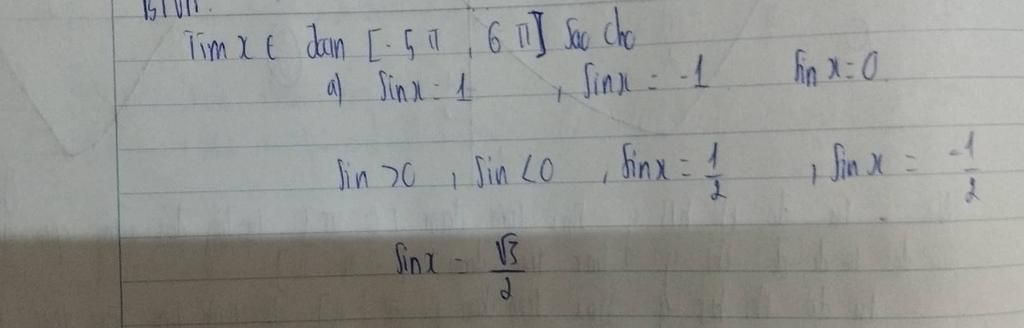 Tìm x ∈ đoạn [-5π, 6π] sao cho
a) sin x = 1 , sin x = -1 sin x = 0
sin >0 , sin <0 , sin x = 1/2 , sin x = -1/2
sin x = √3/2